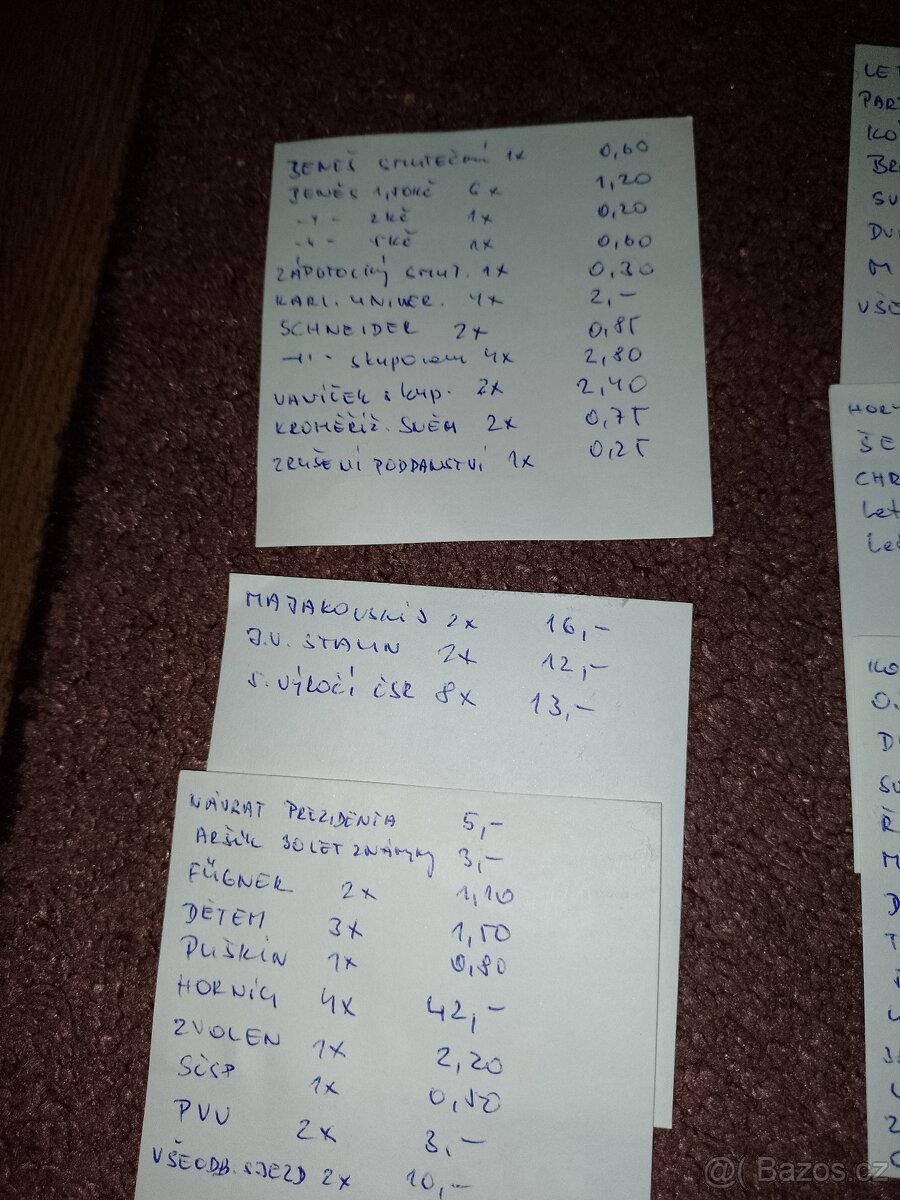 BENEŠ SMUTEČNÍ 1x 0,60
BENEŠ 1,50KČ 6x 1,20
-"- 2KČ 1x 0,20
-"- 5KČ 1x 0,60
ZÁPOTOCKÝ SMUT. 1x 0,30
KARL. UNIVER. 4x 2,-
SCHNEIDER 2x 0,85
-"- skuponem 4x 2,80
VANÍČEK s kup. 2x 2,40
KROMĚŘÍŽ. SNĚM 2x 0,75
ZRUŠENÍ PODDANSTVÍ 1x 0,25
MAJAKOVSKIJ 2x 16,-
J.V. STALIN 2x 12,-
5. VÝROČÍ ČSR 8x 13,-
NÁVRAT PREZIDENTA 5,-
ARŠÍK 30 LET ZNÁMKY 3,-
FÜGNER 2x 1,10
DĚTEM 3x 1,50
PUŠKIN 1x 0,80
HORNÍCI 4x 42,-
ZVOLEN 1x 2,20
SČSP 1x 0,50
PVV 2x 3,-
VŠEODB. SJEZD 2x 10,-
LET
PAR
KO
BR
SU
DU
M
VŠE
HOR
ŠE
CHR
Let
KO
O.
D
SU
Ř
M
D
T
@( Bazos.cz